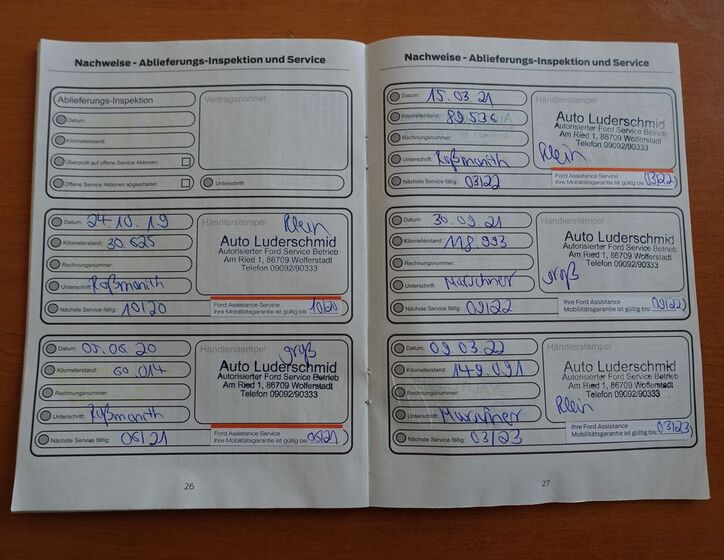 Nachweise - Ablieferungs-Inspektion und Service
Ablieferungs-Inspektion
Datum:
Kilometerstand:
Überprüft auf offene Service Aktionen:
Offene Service Aktionen abgearbeitet:
Vertragspartner
Unterschrift:
Datum: 24.10.19
Kilometerstand: 30.625
Rechnungsnummer:
Unterschrift: Roßmanith
Nächste Service fällig: 10/20
Händlerstempel
Klein
Auto Luderschmid
Autorisierter Ford Service Betrieb
Am Ried 1, 86709 Wolferstadt
Telefon 09092/90333
Ford Assistance Service
Ihre Mobilitätsgarantie ist gültig bis: 10/20
Datum: 05.06.20
Kilometerstand: 60.014
Rechnungsnummer:
Unterschrift: Roßmanith
Nächste Service fällig: 06/21
Händlerstempel
groß
Auto Luderschmid
Autorisierter Ford Service Betrieb
Am Ried 1, 86709 Wolferstadt
Telefon 09092/90333
Ford Assistance Service
Ihre Mobilitätsgarantie ist gültig bis: 06/21
26
Nachweise - Ablieferungs-Inspektion und Service
Datum: 15.03.21
Kilometerstand: 89.536
Rechnungsnummer:
Unterschrift: Roßmanith
Nächste Service fällig: 03/22
Händlerstempel
Auto Luderschmid
Autorisierter Ford Service Betrieb
Am Ried 1, 86709 Wolferstadt
Telefon 09092/90333
Klein
Ford Assistance Service
Ihre Mobilitätsgarantie ist gültig bis: 03/22
Datum: 30.09.21
Kilometerstand: 118.993
Rechnungsnummer:
Unterschrift:
Nächste Service fällig: 09/22
Händlerstempel
Auto Luderschmid
Autorisierter Ford Service Betrieb
Am Ried 1, 86709 Wolferstadt
Telefon 09092/90333
groß
Ihre Ford Assistance
Mobilitätsgarantie ist gültig bis: 09/22
Datum: 09.03.22
Kilometerstand: 149.091
Rechnungsnummer:
Unterschrift:
Nächste Service fällig: 03/23
Händlerstempel
Auto Luderschmid
Autorisierter Ford Service Betrieb
Am Ried 1, 86709 Wolferstadt
Telefon 09092/90333
Klein
Ihre Ford Assistance
Mobilitätsgarantie ist gültig bis: 03/23
27